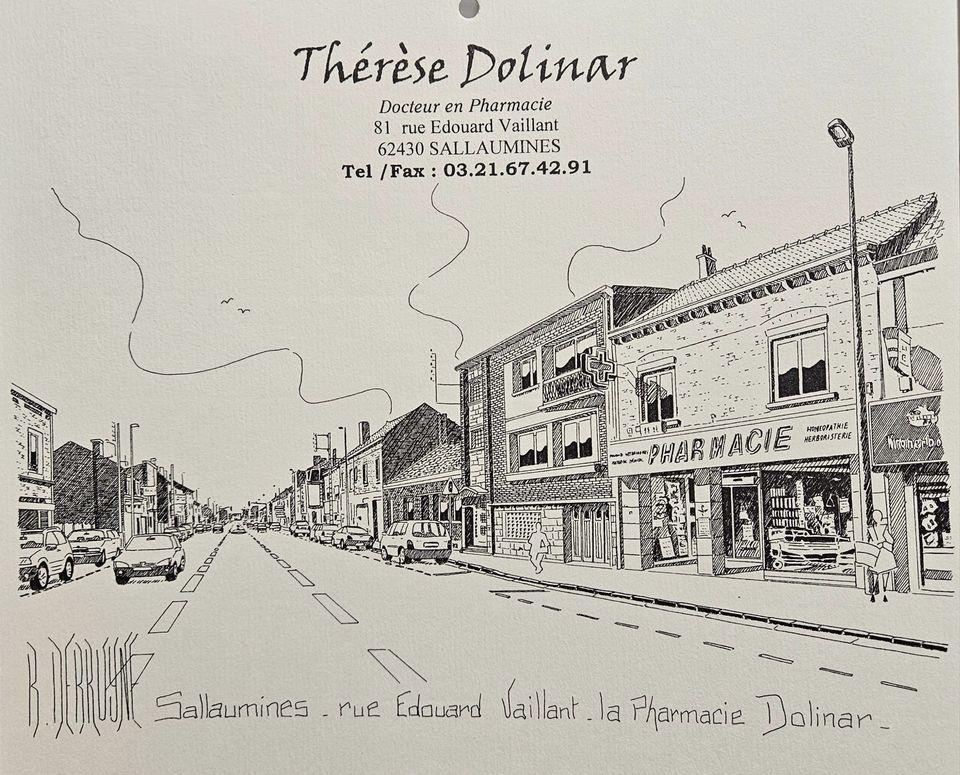 Thérèse Dolinar
Docteur en Pharmacie
81 rue Edouard Vaillant
62430 SALLAUMINES
Tel /Fax : 03.21.67.42.91
PHARMACIE
HOMEOPATHIE
HERBORISTERIE
Sallaumines - rue Edouard Vaillant - la Pharmacie Dolinar -